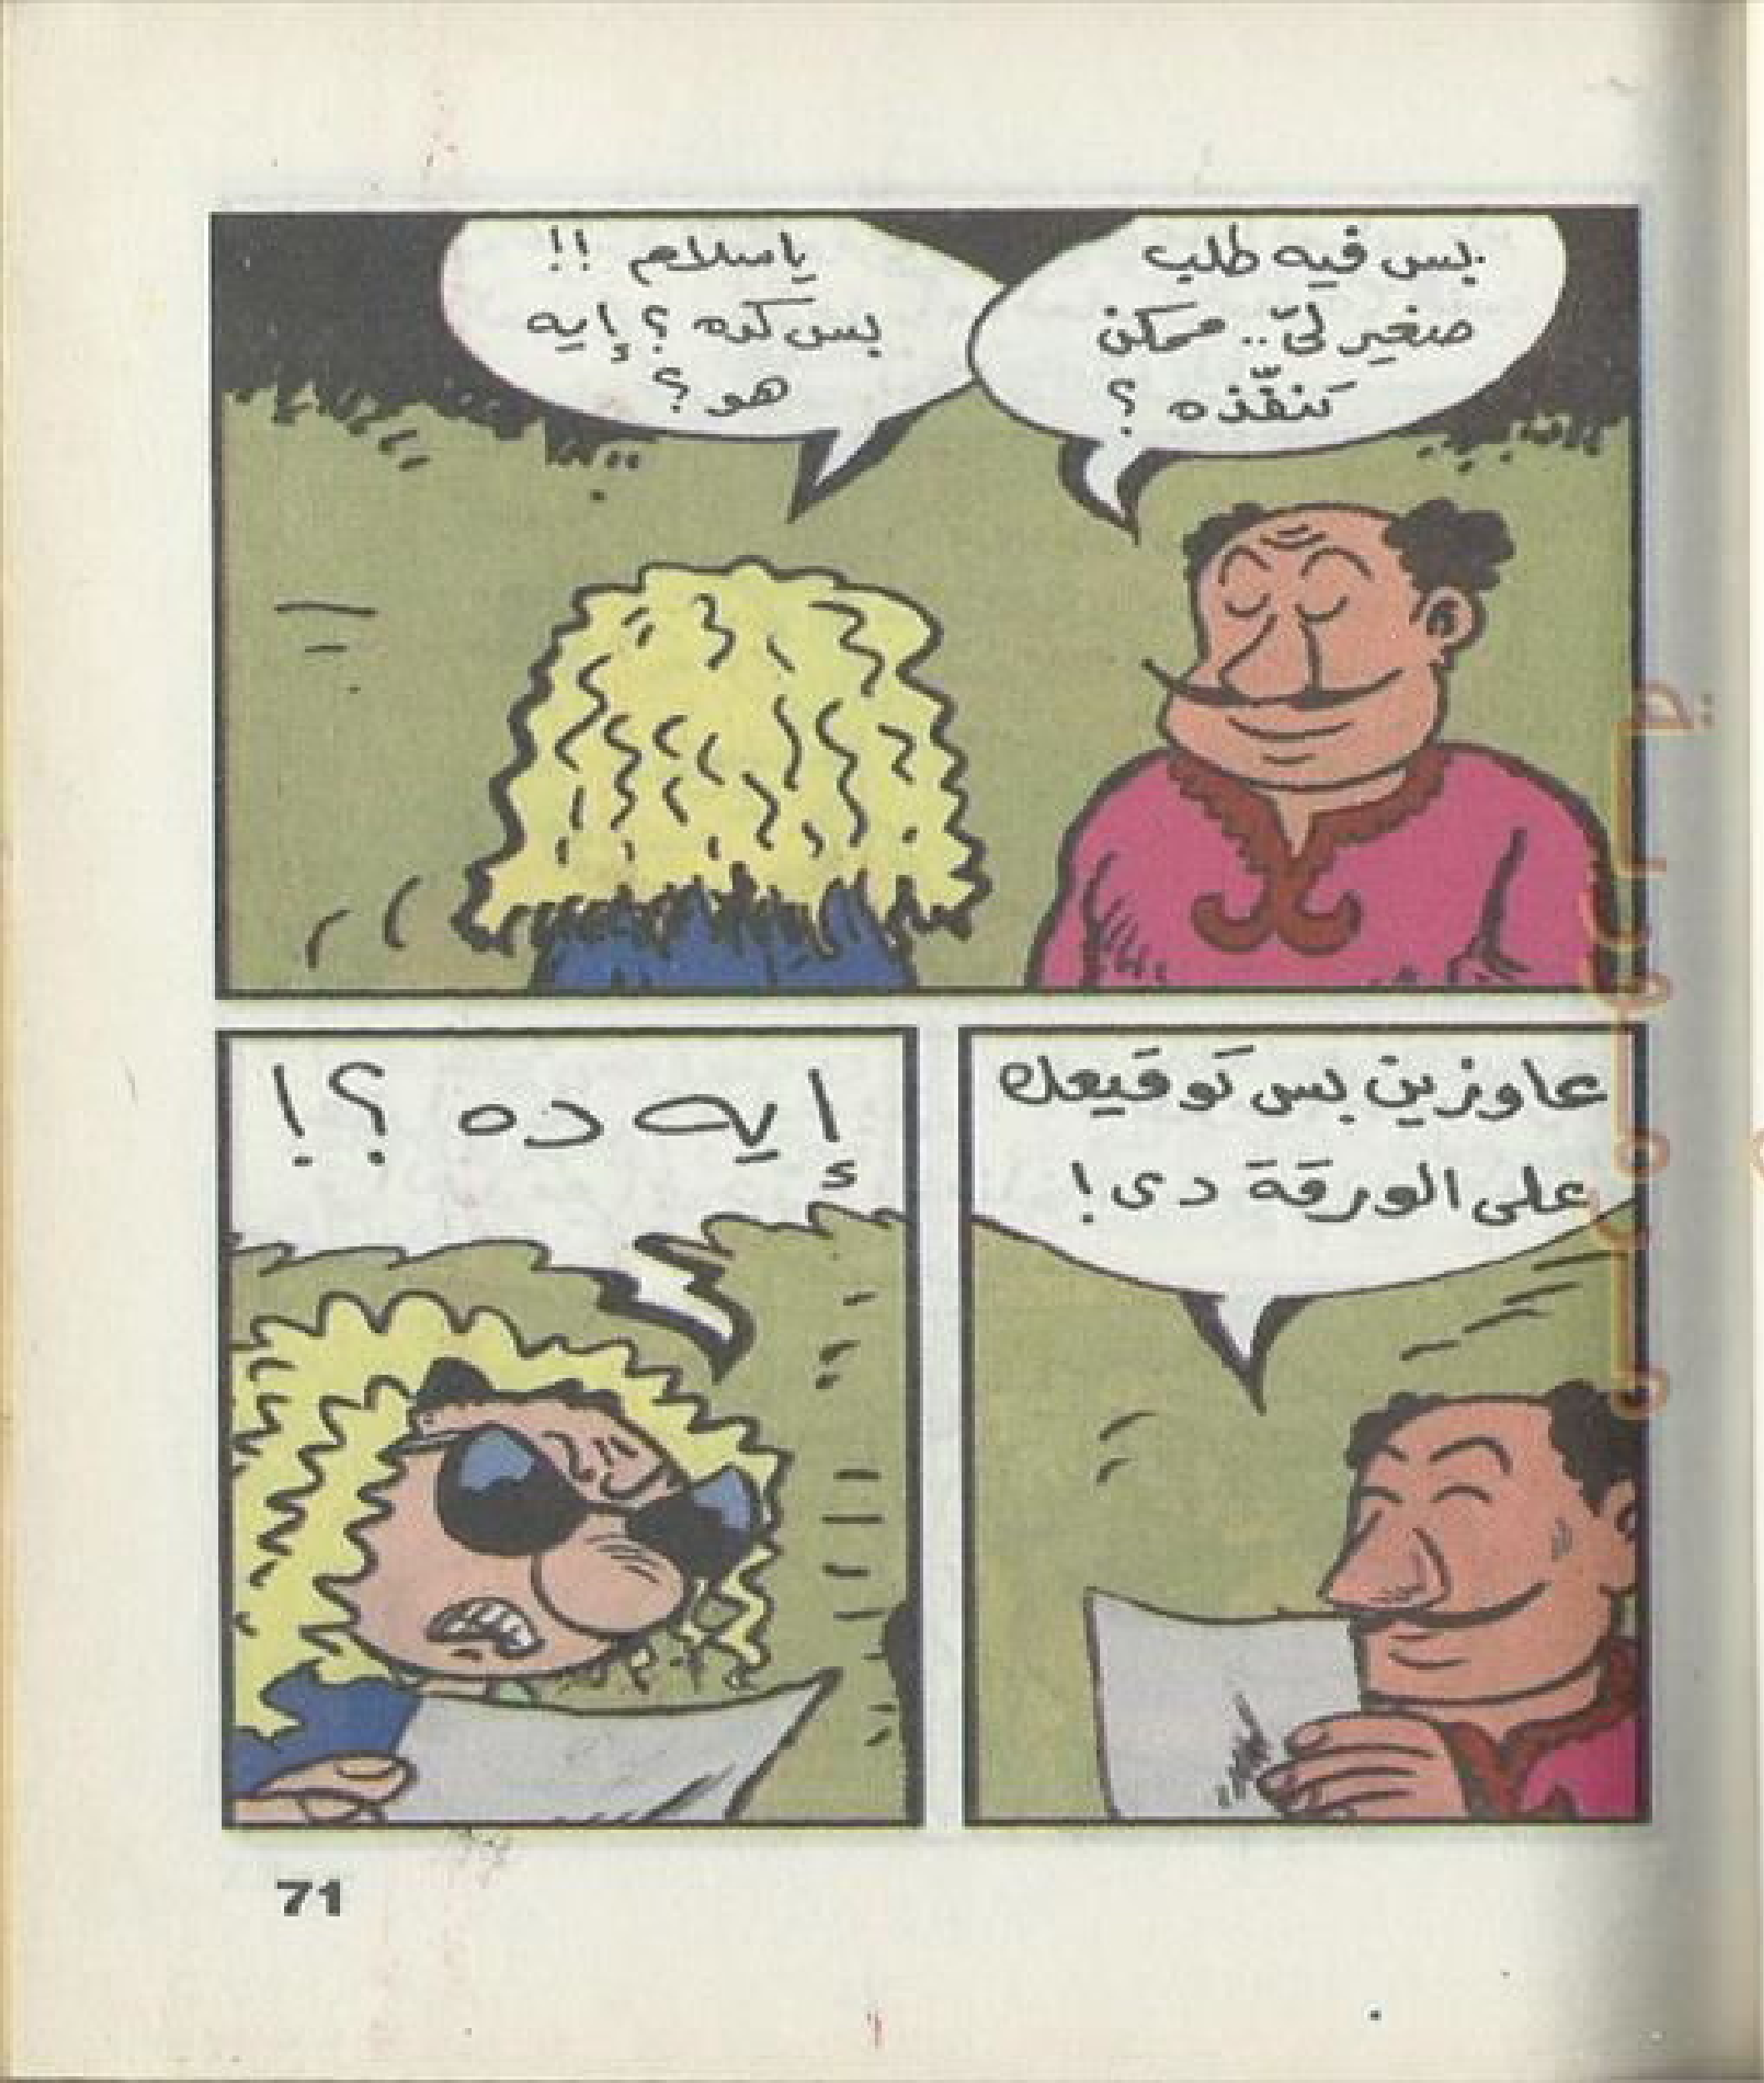 بس فيه طلب
صغير لىّ.. ممكن
تنفّذه ؟
ياسلام !!
بس كده ؟ إيه
هو ؟
عاوزين بس توقيعك
على الورقة دى !
إيه ده ؟!
71